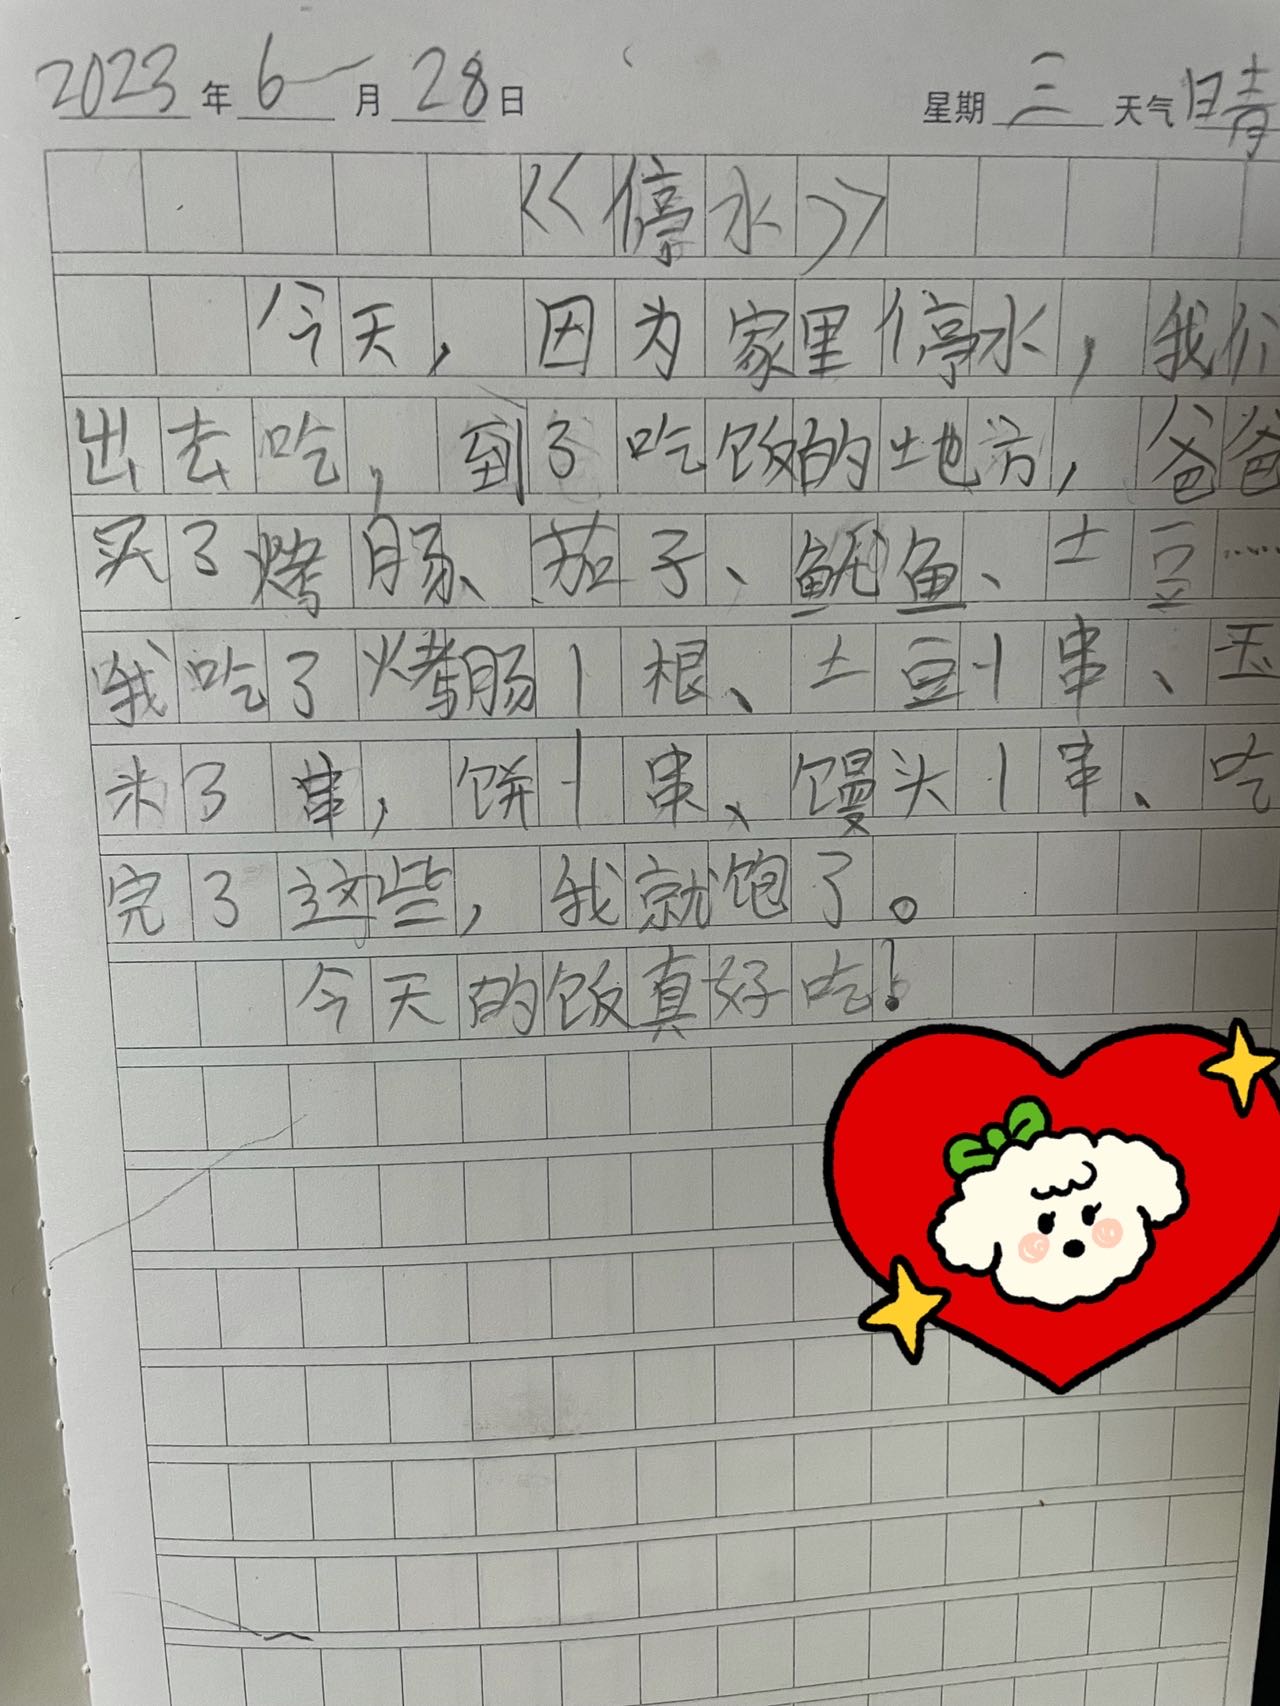 2023年6月28日 星期三 天气晴
<<停水>>
今天，因为家里停水，我们
出去吃，到了吃饭的地方，爸爸
买了烤肠、茄子、鱿鱼、土豆……
我吃了烤肠1根、土豆1串、玉
米3串，饼1串、馒头1串、吃
完了这些，我就饱了。
今天的饭真好吃！